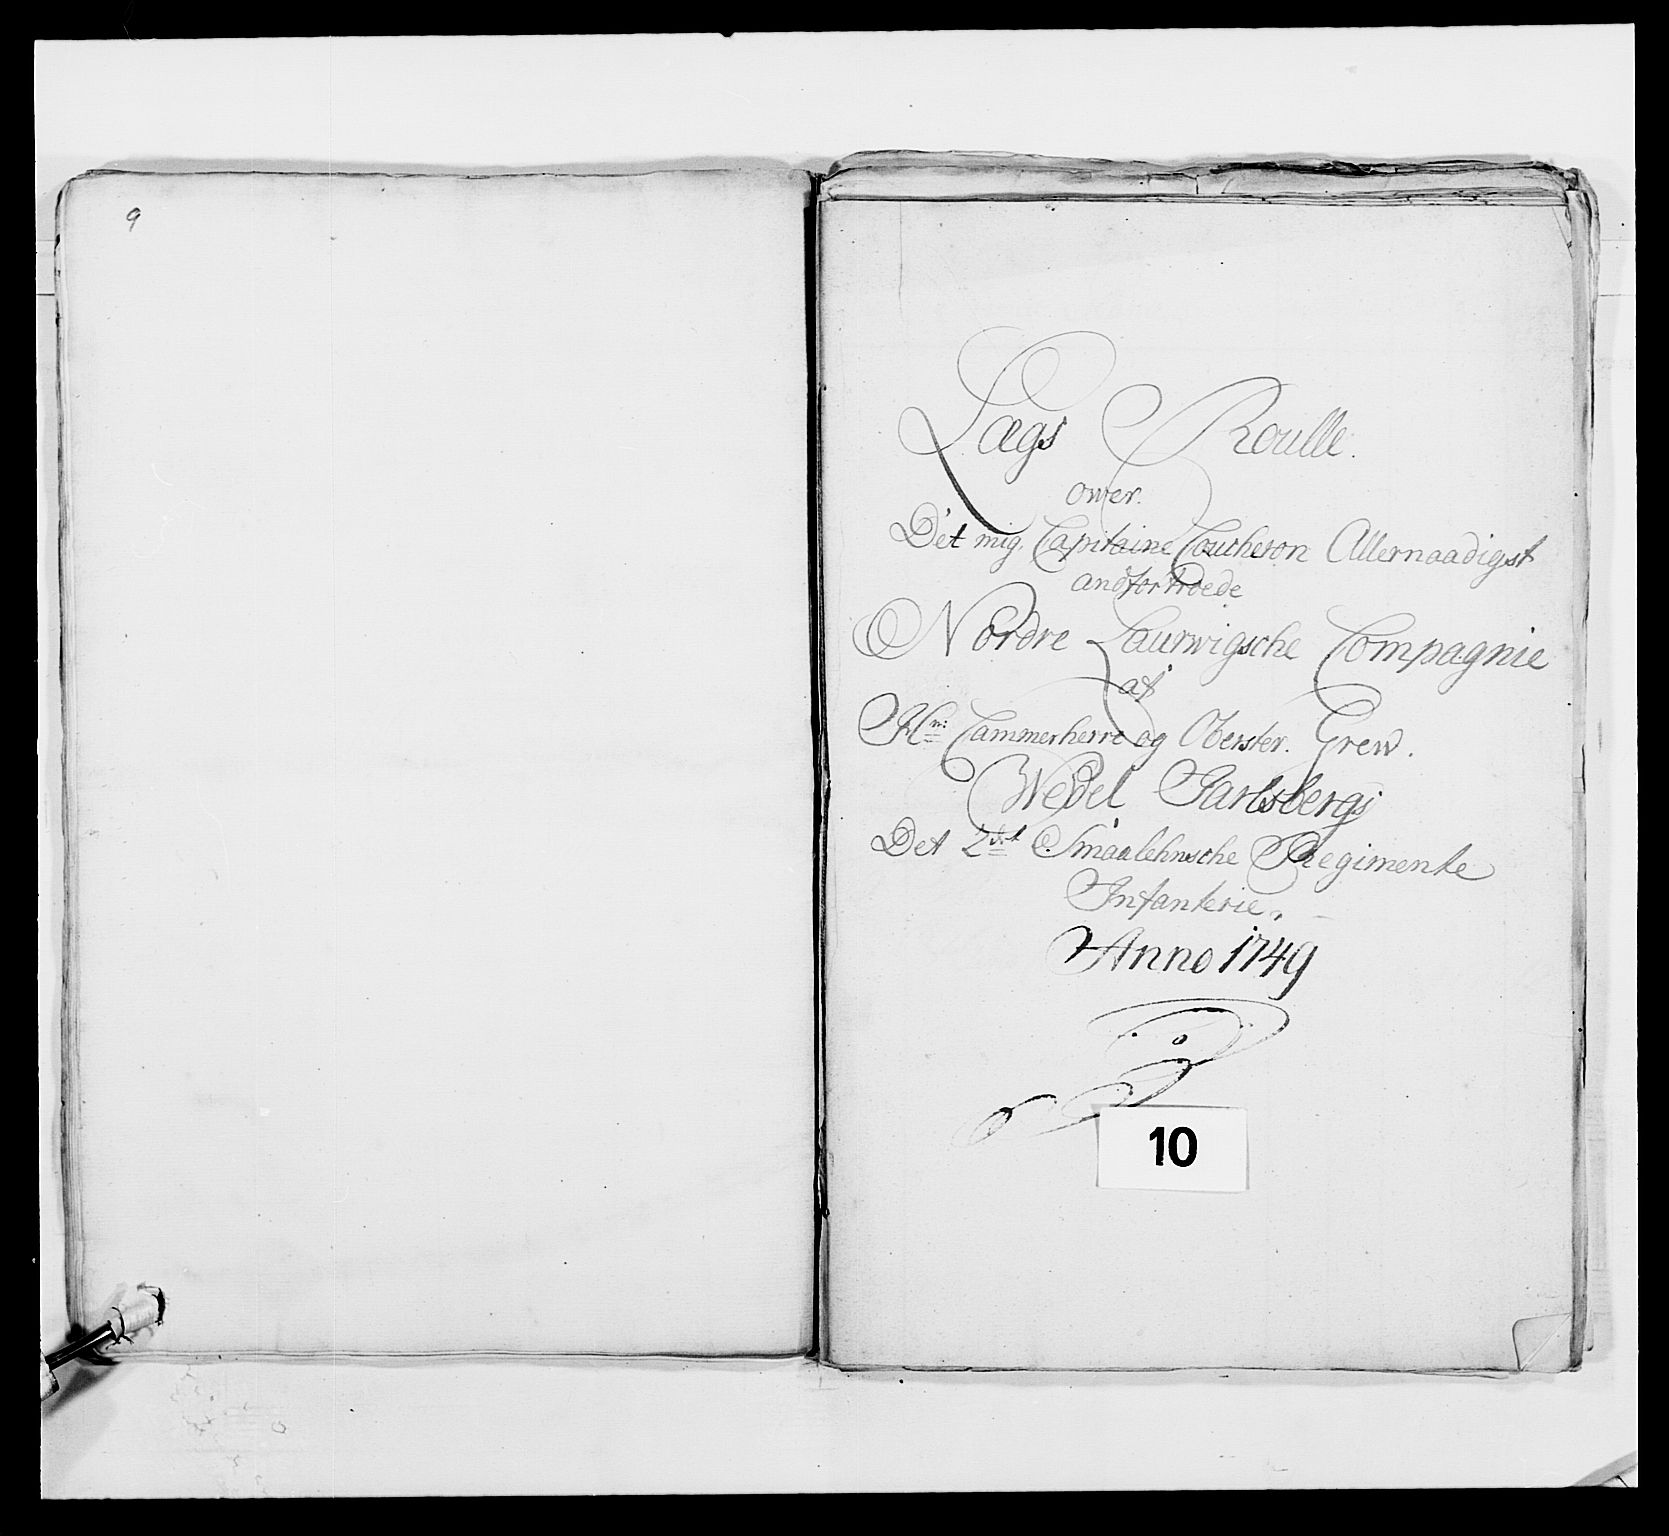 9
Lægs Roulle.
ower.
Det mig, Capitaine Coucheron Allernaadigst
andfortroede
Nordre Laurwigsche Compagnie
af
Hr: Cammerherre og Oberster. Grew.
Wedel Jarlsbergs
Det 2det Smaalehnsche Regimente
Infanterie.
Anno 1749
10